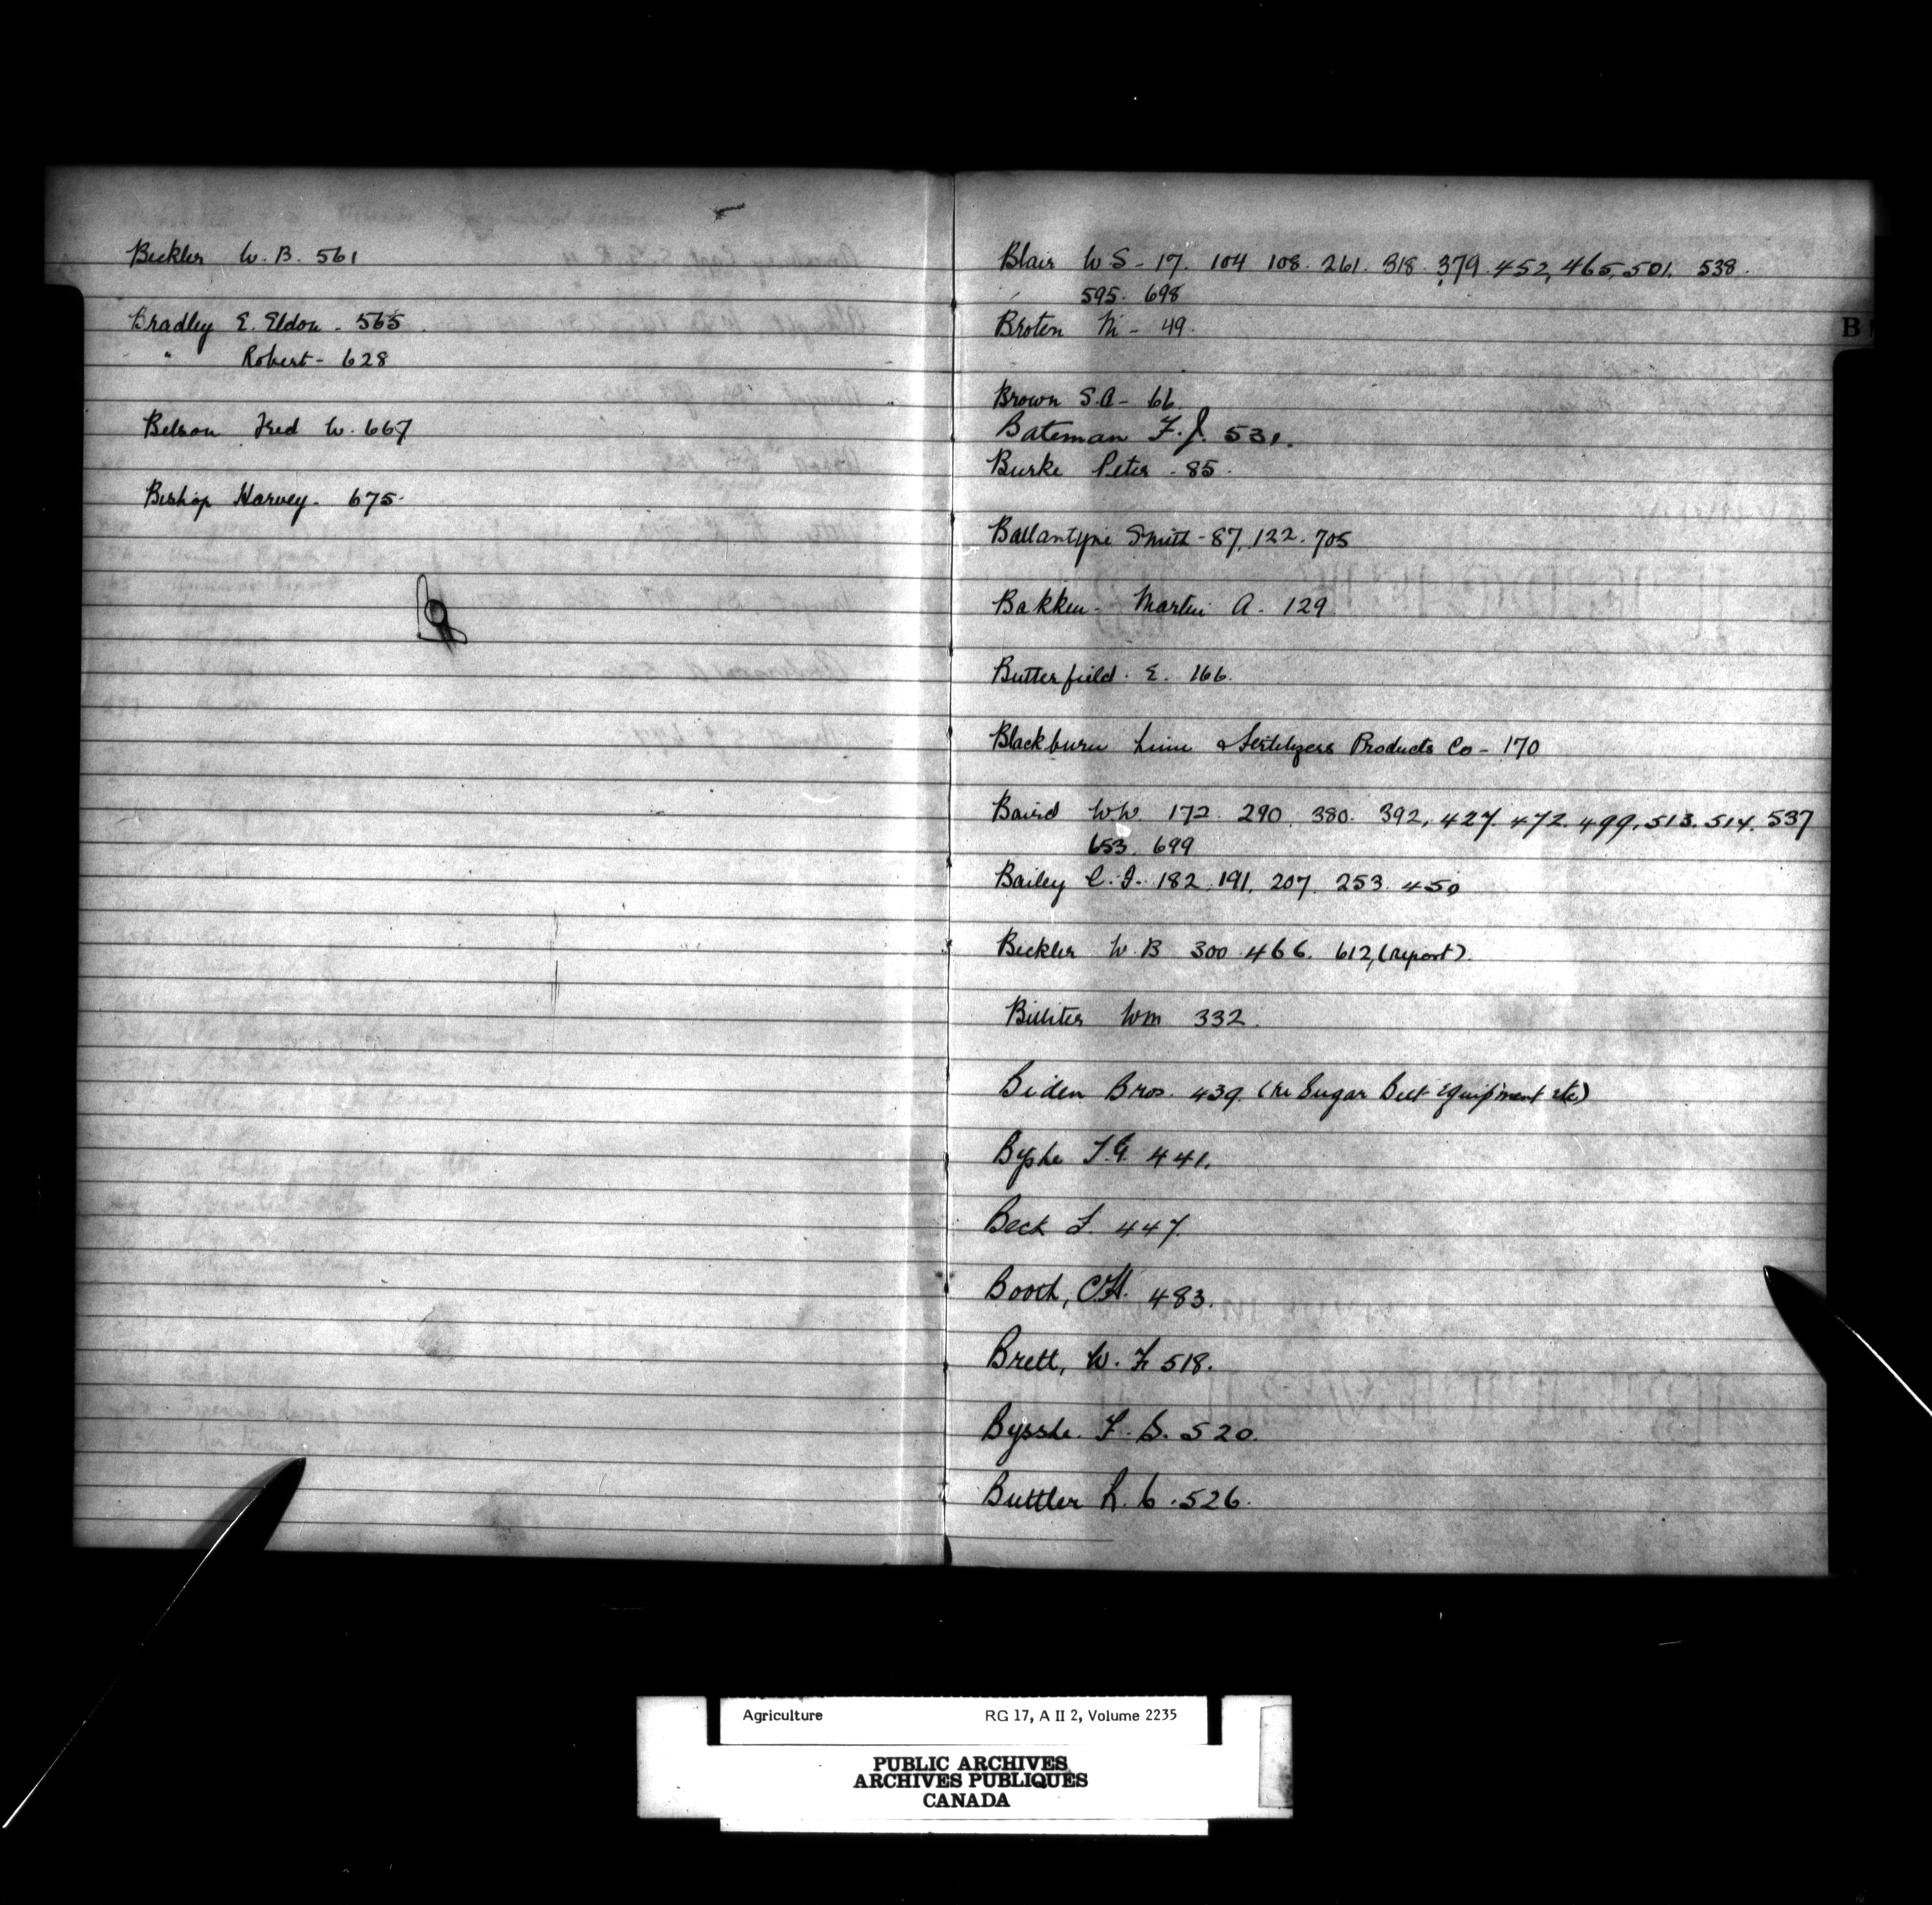 Beckler W. B. 561
Bradley E. Eldon - 565
" Robert - 628
Belson Fred W. 667
Bishop Harvey - 675
Blair W S - 17. 104 108. 261. 318. 379. 452, 465, 501. 538.
595. 698
Broten M - 49.
B
Brown S.A - 66.
Bateman F. J. 531.
Burke Peter - 85.
Ballantyne Smith - 87, 122. 705
Bakken - Martin A. 129
Butterfield. E. 166.
Blackburn Lime & Fertilizers Products Co - 170
Baird W.W. 172. 290. 380. 392, 427. 472. 499, 513. 514. 537
653. 699
Bailey C. I. 182. 191. 207. 253. 450
Beckler W. B 300 466. 612, (report).
Wm 332.
Biden Bros. 439. (re Sugar Beet Equipment etc)
Byshe 441.
Beck 447.
Booth, C.H. 483.
Brett, W. 518.
Bysshe. F. B. 520.
Buttler 526.
Agriculture RG 17, A II 2, Volume 2235
PUBLIC ARCHIVES
ARCHIVES PUBLIQUES
CANADA